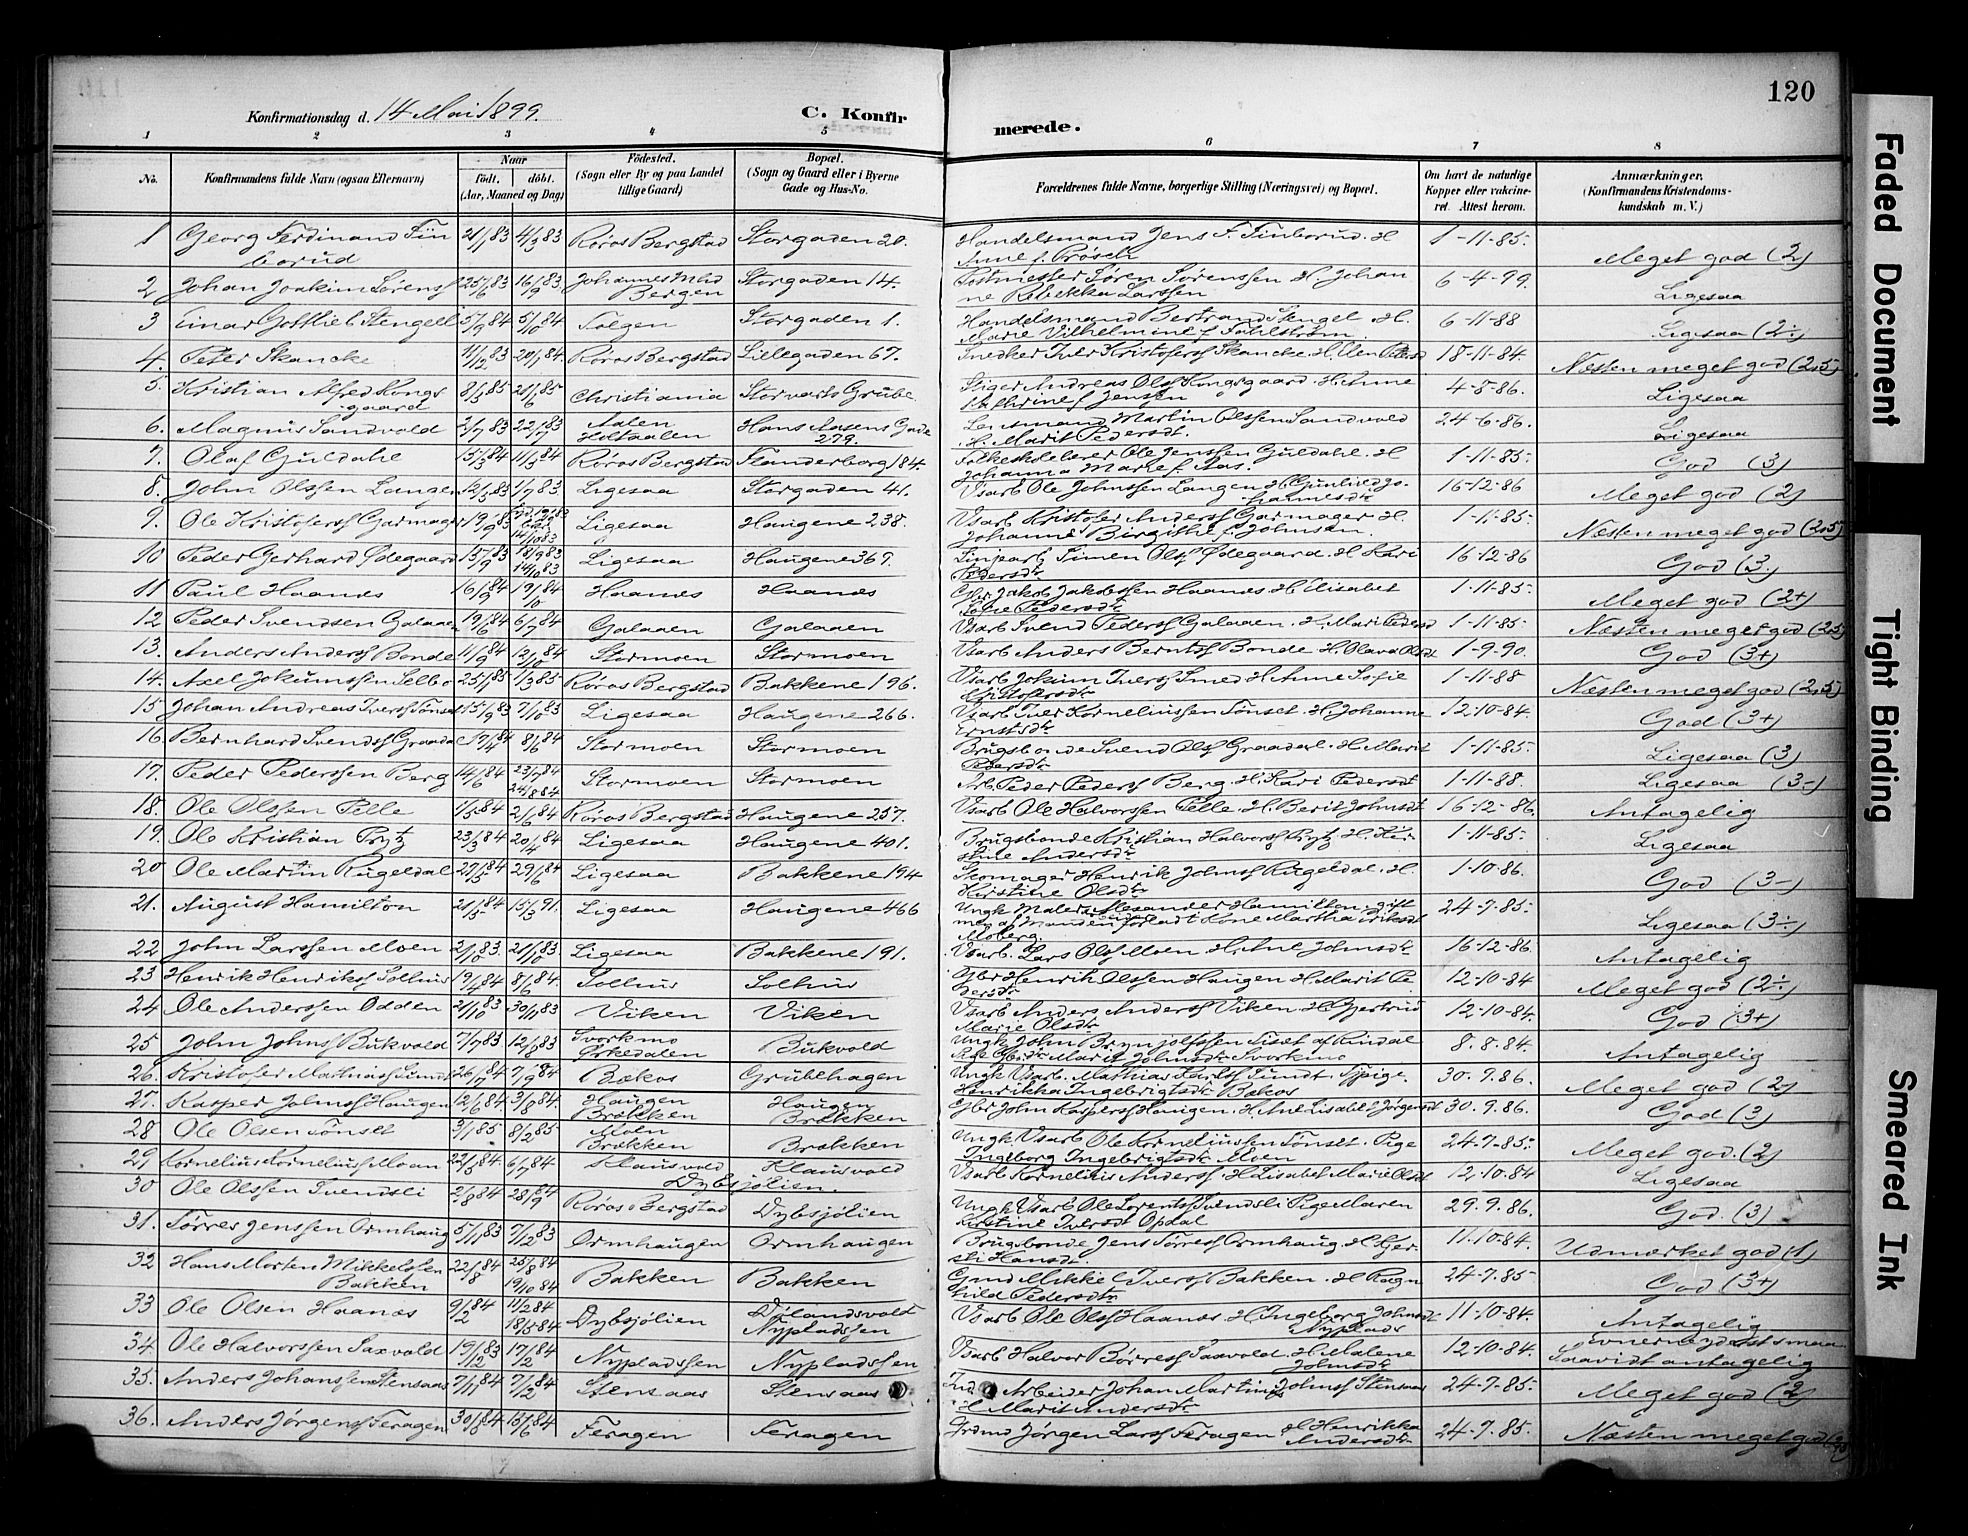 120
Konfirmationsdag d. 14 Mai 1899.
C. Konfirmerede.
1 2 3 4 5 6 7 8
No.
Konfirmandens fulde Navn (ogsaa Efternavn)
Naar
født. døbt.
(Aar, Maaned og Dag)
Fødested.
(Sogn eller By og paa Landet
tillige Gaard)
Bopæl.
(Sogn og Gaard eller i Byerne
Gade og Hus-No.
Forældrenes fulde Navne, borgerlige Stilling (Næringsvei) og Bopæl.
Om havt de naturlige
Kopper eller vakcine-
ret. Attest herom.
Anmærkninger.
(Konfirmandens Kristendoms-
kundskab m. V.)
1 Georg Ferdinand Finborud 21/1 83 4/3 83 Røros Bergstad Storgaden 20. Handelsmand Jens F. Finborud. H. Anne f. Prösch 1-11-85. Meget god (2)
2 Johan Joakim Sørens 25/6 83 16/9 83 Bergen Storgaden 14. Postmester Søren Sørenssen H. Johanne Rebekka Larssen 6-4-99. Ligesaa
3 Einar Gottlieb Stengell 5/9 84 5/10 84 Tolgen Storgaden 1. Handelsmand Bertrand Stengel H. Marie Vilhelmine f. Fahlstrøm 6-11-88 Ligesaa (2÷)
4. Peter Skancke 11/12 83 20/1 84. Røros Bergstad Lillegaden 67. Snedker Iver Kristofersf Skancke. H. 18-11-84. Næsten meget god (2,5)
5. Kristian Alfred Kongsgaard 8/1 85 21/6 85 Christiania Storvarts Grube Stiger Andreas Olsf Kongsgaard. H. Anne Kathrine f. Jensen 4-8-86. Ligesaa
6. Magnus Sandvold 2/7 83 22/7 83 Aalen Holtaalen Hans Aasens Gade 279. Lensmand Martin Olssen Sandvold H. Marit Pedersdt. 24-6-86. Ligesaa
7. Olaf Guldahl 15/3 84 11/5 84 Røros Bergstad Flanderborg 184 Folkeskolelærer Ole Jenssen Guldahl. H. Johanna Marie f. Aas. 1-11-85. God (3)
8. John Olssen Langen 12/5 83 1/7 83. Ligesaa Storgaden 41. Vsarb Ole Johnssen Langen H. Gunhild Johannesdt. 16-12-86 Meget god (2)
9. Ole Kristofersf Garmager 19/9 83 14/10 83 Ligesaa Haugene 238. Vsarb Kristofer Andersf Garmager H. Johanne Birgithe f. Johnsen 1-11-85. Næsten meget god (2,5)
10 Peder Gerhard Ødegaard 15/9 83 18/9 83 14/10 83 Ligesaa Haugene 367. Linjearb. Simen Olsf Ødegaard. H. Kari Pedersdt. 16-12-86 God (3.)
11 Paul Haanes 16/9 84 19/10 84 Haanes Haanes Gbr. Jakob Jakobssen Haanes H. Elisabet Sofie Pedersdt. 1-11-85. Meget god (2+)
12 Peder Svendsen Galaaen 19/6 84 6/7 84 Galaaen Galaaen Vsarb Svend Pedersf Galaaen. H. Mari Pedersd 1-11-85. Næsten meget god (2,5)
13. Anders Andersf Bonde 11/9 84 12/10 84 Stormoen Stormoen Vsarb Anders Berntsf Bonde H. Olava Olsdt 1-9-90. God (3+)
14. Axel Jokumssen Selbo 25/1 85 1/3 85 Røros Bergstad Bakkene 196. Vsarb Jokum Iversf Smed H. Anne Sofie Kristofersdt. 1-11-88 Næsten meget god (2,5)
15 Johan Andreas Iversf Tønset 15/9 83 7/10 83 Ligesaa Haugene 266. Vsarb Iver Korneliussen Tønset. H. Johanne Ernstsdt. 12-10-84. God (3+)
16. Bernhard Svendsf Graadal 17/4 84 8/6 84 Stormoen Stormoen Brugsbonde Svend Olsf Graadal. H. Marit Pedersdt. 1-11-85. Ligesaa (3)
17. Peder Pederssen Berg 14/6 84 23/7 84 24/8 84 Stormoen Stormoen Arb. Peder Pedersf Berg. H. Kari Pedersdt 1-11-88. Ligesaa (3-)
18. Ole Olssen Pelle 1/5 84 2/6 84 Røros Bergstad Haugene 257. Vsarb Ole Halvorssen Pelle. H. Berit Johnsdt 16-12-86. Antagelig
19. Ole Kristian Prytz 23/3 84 20/4 84 Ligesaa Haugene 401. Brugsbonde Kristian Halvorsf Prytz H. Kirstine Andersdt. 1-11-85. Ligesaa
20 Ole Martin Rugeldal 27/5 84 29/6 84 Ligesaa Bakkene 194 Skomager Henrik Johnsf Rugeldal. H. Kirstine Olsdt. 1-10-86. God (3-)
21. August Hamilton 21/5 84 15/3 91. Ligesaa Haugene 466 Ungk Maler Alexander Hamilton. gift med af Manden forladt Kone Martha Eriksdt Moberg 24-7-85. Ligesaa (3÷)
22 John Larssen Moen 2/10 83. 21/10 83 Ligesaa Bakkene 191. Vsarb. Lars Olsf Moen H. Ane Johnsdt. 16-12-86 Antagelig
23 Henrik Henriksf Solhus 19/4 84 8/6 84 Solhus Solhus Gbr Henrik Olssen Haugen H. Marit Pedersdt. 12-10-84 Meget god (2÷)
24 Ole Anderssen Odden 21/10 83. 30/11 83 Viken Viken Vsarb Anders Andersf Viken H. Gjertrud Marie Olsdt. 12-10-84. God (3+)
25 John Johnsf Bukvold 7/7 83 12/8 83 Svorkmo Ørkedalen Bukvold Ungk John Brynjolfssen Siset af Rindal Marit Johnsdt. Svorkmo 8-8-84. Antagelig
26. Kristofer Mathiasf Sundt 26/7 84 7/9 84 Bækos Grubehagen Ungk Vsarb. Mathias Sundt. Pige. Henrikka Ingebrigtsdt. Bækos 30.9.86. Meget god (2)
27. Kasper Johnsf Haugen 12/6 84. 3/8 84 Haugen Brækken Haugen Brækken Gbr John Kaspersf Haugen. H. Ane Lisabet Jørgensdt 30.9.86. God (3)
28 Ole Olsen Tønset 3/1 85 8/2 85 Moen Brækken Brækken Ungk. Vsarb Ole Korneliussen Tønset. Pige Ingeborg Ingebrigtsdt. Moen 24-7-85. Meget god. (2)
29 Kornelius Korneliusf Moan 22/5 84 6/7 84 Klausvold Klausvold Vsarb Kornelius Andersf H. Lisabet Marie Olsdt 12-10-84 Ligesaa
30 Ole Olssen Svendsli 2/8 84 28/9 84 Røros Bergstad Dybsjølien. Dybsjölien Ungk Vsarb Ole Lorentsf Svendsli Pige Maren Kirstine Iversdt Opdal 29.9.86. God. (3)
31. Sørres Jenssen Ormhaug 5/11 83 7/12 83 Ormhaugen Ormhaugen Brugsbonde Jens Sørresf Ormhaug. H. Hansdt. 11-10-84. Udmærket god (1)
32 Hans Morten Mikkelsten Bakken 22/8 84 25/8 84 19/10 84 Bakken Bakken Gmd Mikkel Iversf Bakken. H. Ragnhild Pedersdtr 24-7-85. God (3+)
33 Ole Olsen Haanæs 9/2 84 11/2 84 18/5 84 Dybsjölien Dølandsvold Nypladsen Vsarb Ole Olsf Haanæs. H. Ingeborg Johnsdt. Nyplads 11-10-84. Antagelig
34 Ole Halvorssen Saxvold 19/12 83 17/2 84 Nypladssen Nypladssen Vsarb Halvor Børresf Saxvold. H. Malene Johnsdt. 12-10-84. Evnerne ydderst smaa Saavidt antagelig
35. Anders Johanssen Stensaas 7/11 84 7/12 84 Stensaas Stensaas Ind. Arbeider Johan Martinus Johnsf Stensaas H. Marit Andersdt. 24-7-85. Meget god (2)
36. Anders Jørgensf Feragen 30/8 84 15/6 84 Feragen Feragen Grdmd Jørgen Larsf Feragen H. Henrikka Andersdt. 24-7-85. Næsten meget god (2,5)
Faded Document
Tight Binding
Smeared Ink